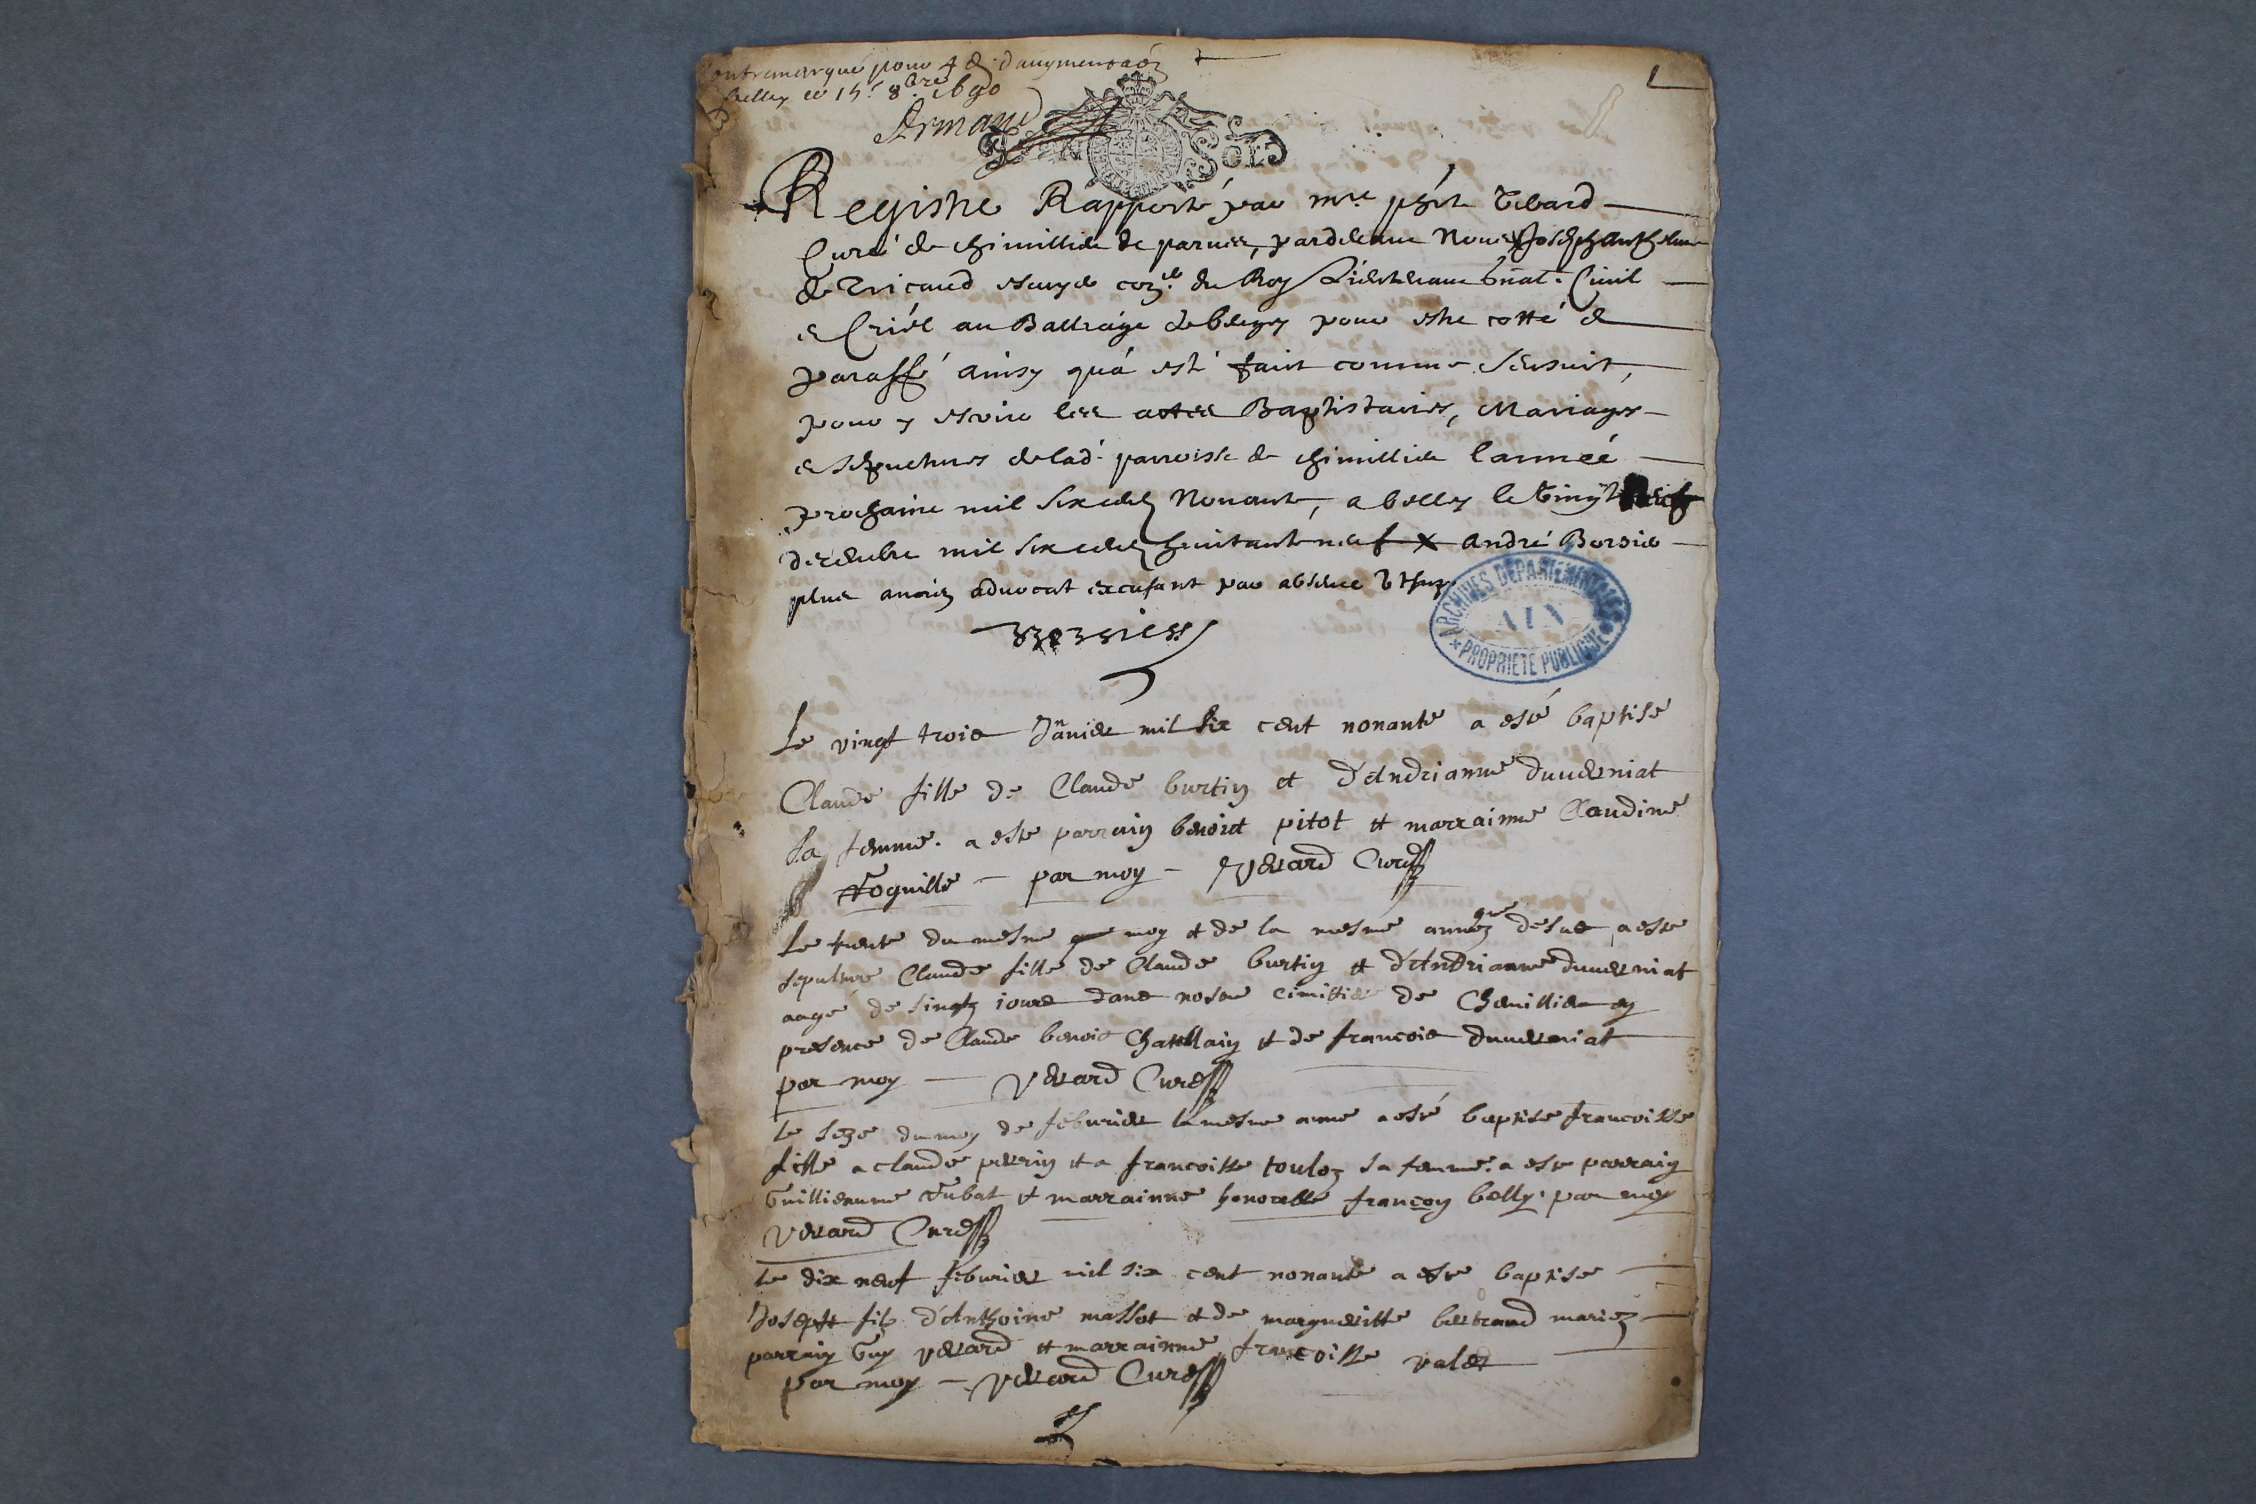 contremarqué pour 4 d. d'augmentaõn
belley ce 15e 8bre 1690
1
Armand
SOLS
Registre Rapporté par mre Verard
Curé de chimillieu de parues, pardevant Nous Joseph Anthelme
de Tricaud escuyer du Roy Lieutenant gñal Civil
e Criel au Balliage pour estre cotté &
paraffé ainsy qu'à esté fait comme s'ensuit,
pour y escrire les actes Baptistaires, Mariages
e sepultures de lad. parroisse de chimillieu l'année
prochaine mil six cent Nonante, a belley le vingt neuf
decembre mil six cent huitante neuf x André Borsier
plus ancien advocat excusant par absence
Borsier
ARCHIVES DEPARTEMENTALES
AIN
PROPRIETE PUBLIQUE
Le vingt trois Janvier mil six cent nonante a esté baptise
Claude fille de Claude burtin et d'Andrianne duuerniat
sa femme. a este parrain benoict pitot et marrainne Claudine
Foguille par moy Verard Curé
Le trente du mesme moy et de la mesme année que desus a este
sepulture Claude fille de Claude burtin et d'Andrianne duuerniat
aagé de jours dans nostre cimittier de Chemillieu en
presence de Claude benoit Chastellain et de francois duuerniat
par moy Verard Curé
Le seze du moy de feburier la mesme anne a esté baptise francoisse
fille a claude perrin et a francoisse touloz sa femme. a este parrain
Guillieaume Fubat et marrainne honorable françoy belly. par moy
Verard Curé
Le dix neuf feburier mil six cent nonante a este baptise
Joseph filz d'Anthoine massot et de margueritte bertrand mariez
parrain Guy verard et marrainne francoisse valet
par moy Verard Curé